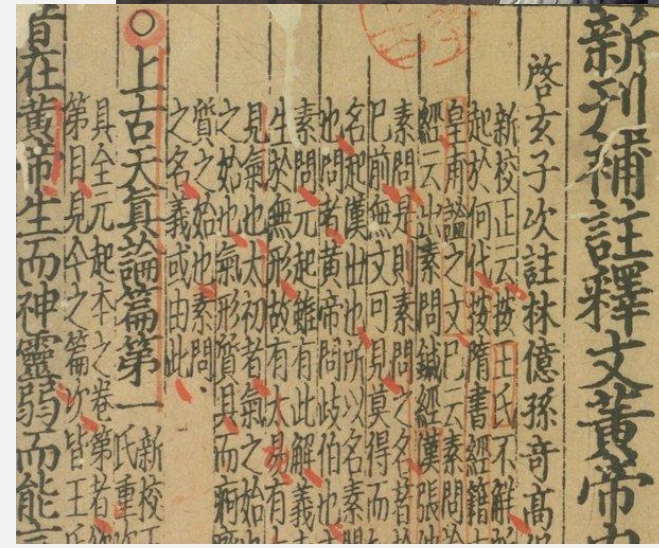 新刋補註釋文黃帝
啓玄子次註林億孫奇高
新校正云按王氏不解所
起於何代按隋書經籍
皇甫謐之文已云素問
經云迨素問鍼經漢張
素問是則素問之名著於
已前無文可見莫得而
名起漢世也所以名素問
也問者黃帝問岐伯也
素問元起雖有此解義
生於無形故有太易有
見氣也太初者氣之始也
之始也氣形質具而痾
質之始也素問
之名義或由此
○上古天真論篇第一
新校正
氏重次
具全元起本之卷第者欲
第目見今之篇次皆王氏
昔在黃帝生而神靈弱而能言